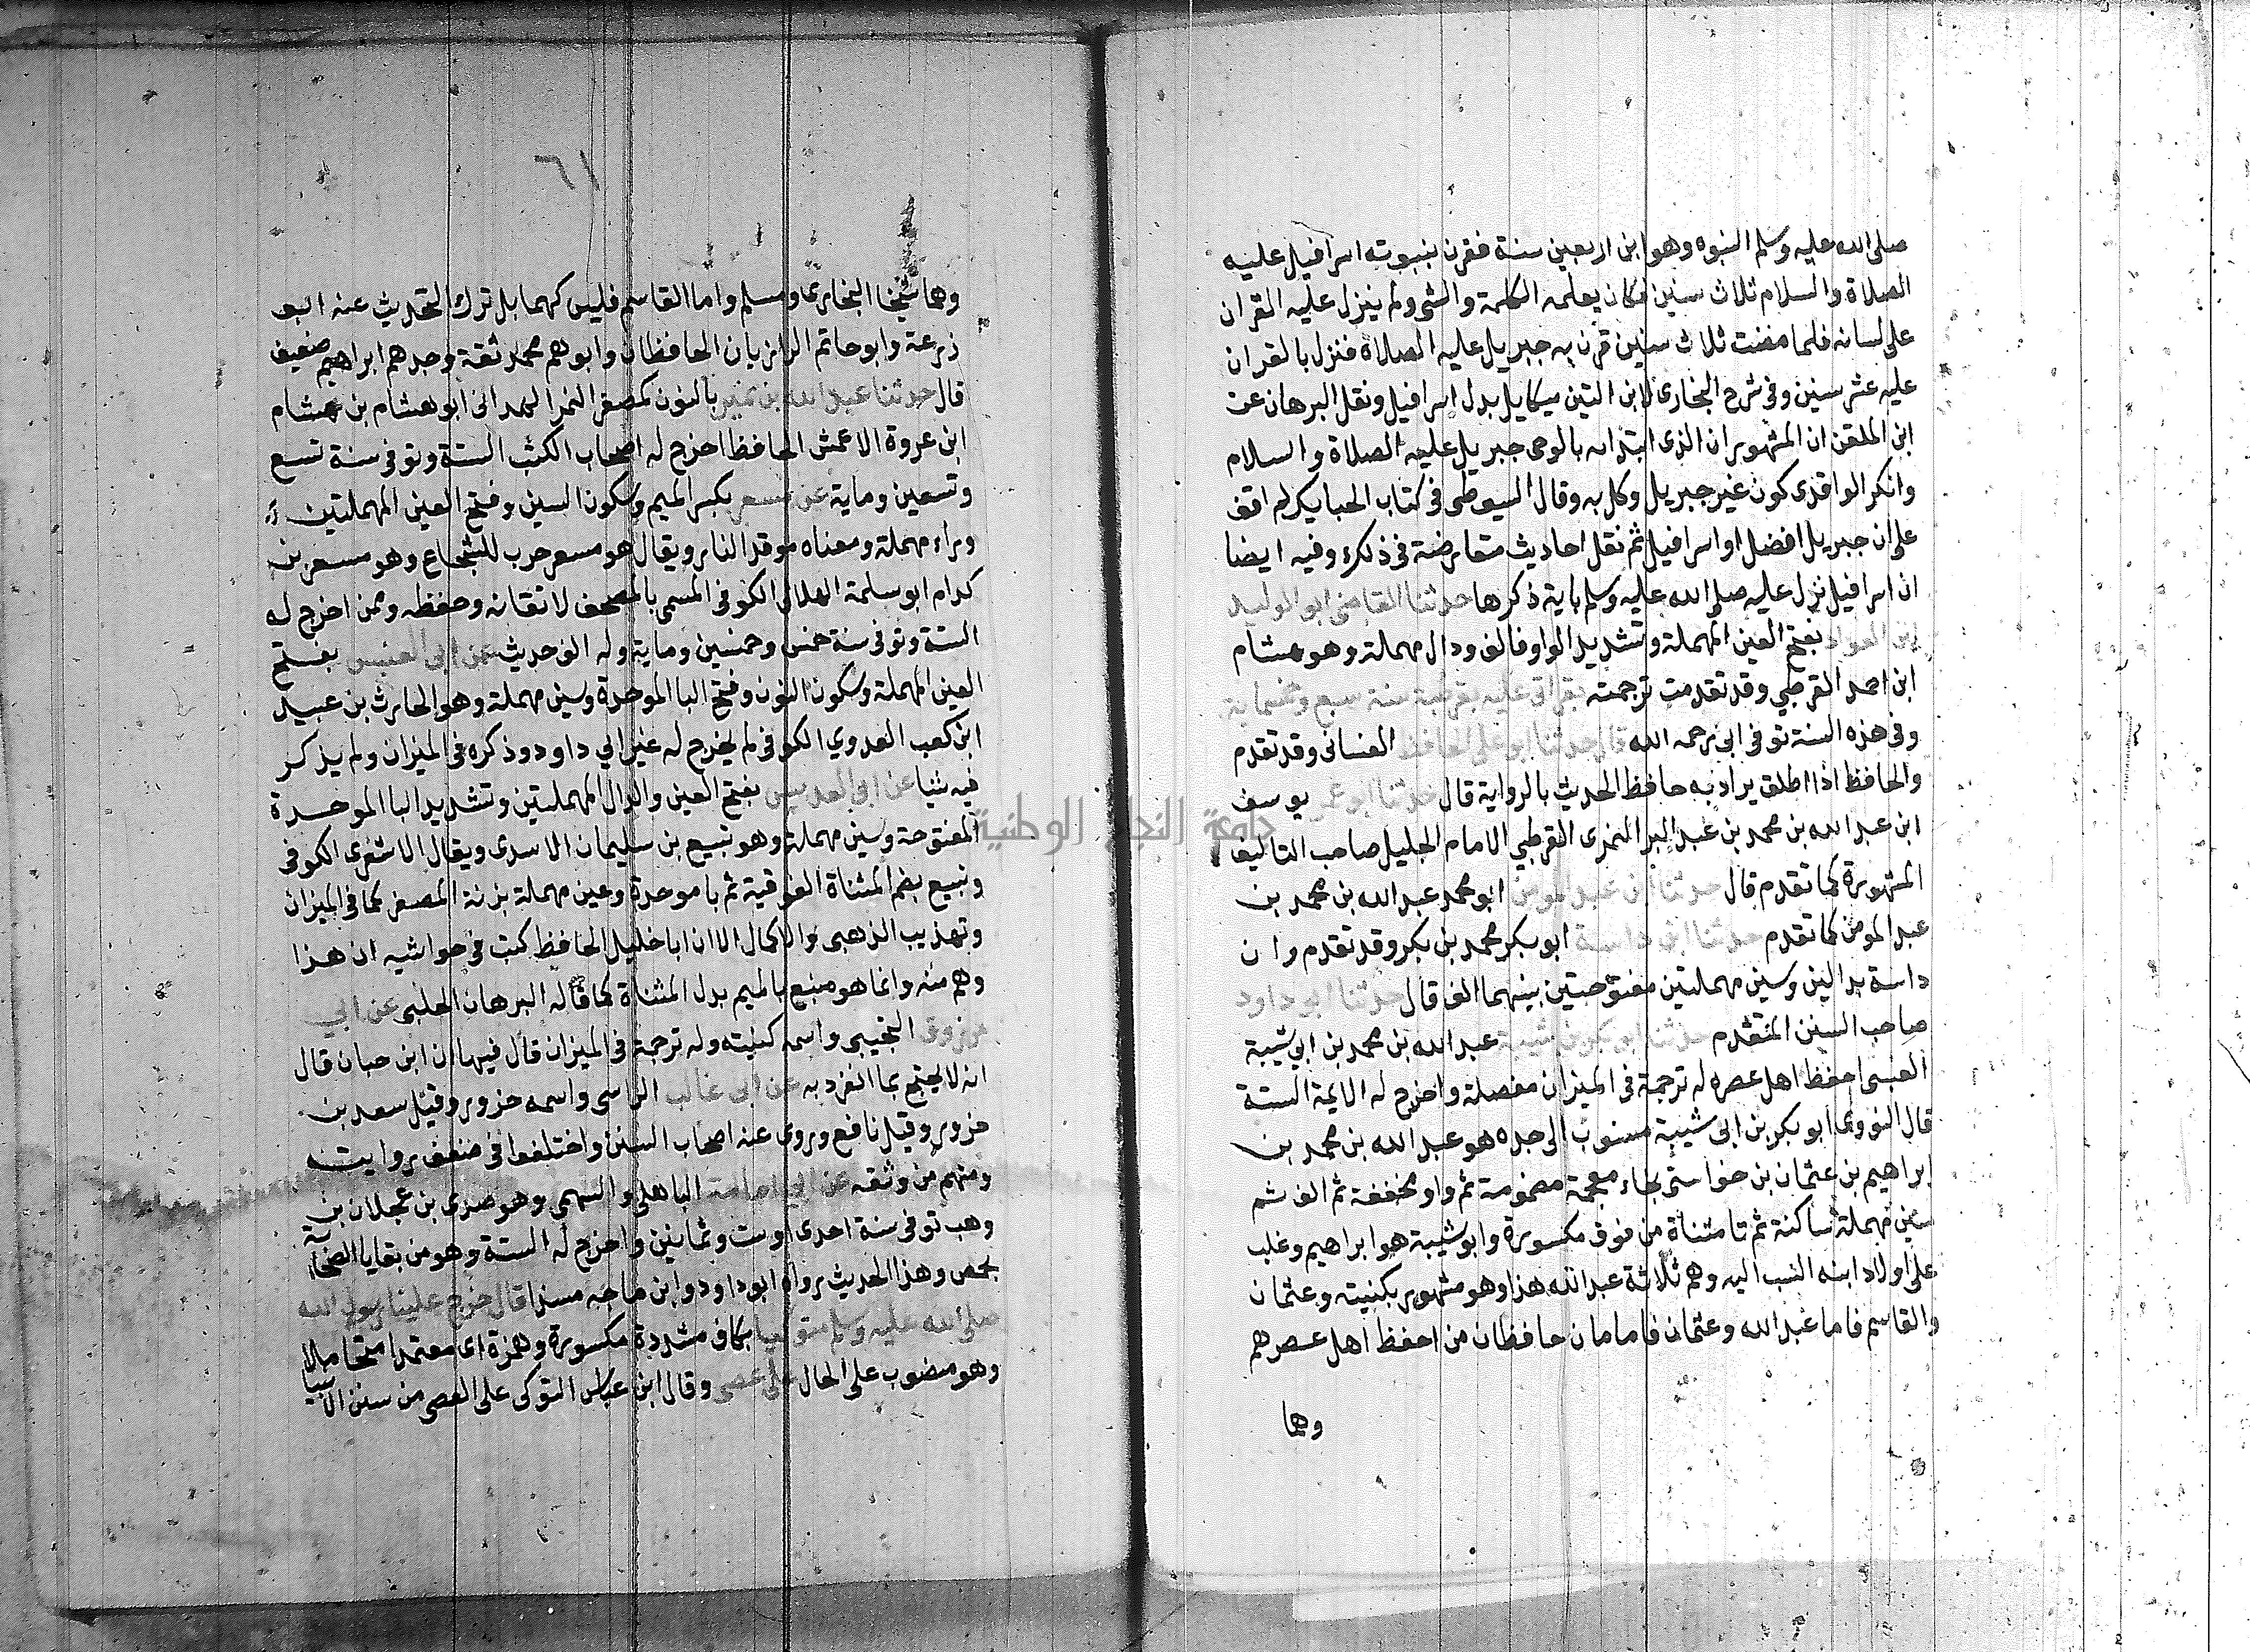 صلى الله عليه وسلم النبوه وهو ابن اربعين سنة فقرن بنبوته اسرافيل عليه
الصلاة والسلام ثلاث سنين فكان يعلمه الكلمة والشى ولم ينزل عليه القران
على لسانه فلما مضت ثلاث سنين قرن به جبريل عليه الصلاة فنزل بالقران
عليه عشر سنين وفى شرح البخارى لابن التين ميكايل بدل اسرافيل ونقل البرهان عن
ابن الملقن ان المشهور ان الذى ابتداه بالوحى جبريل عليه الصلاة والسلام
وانكر الواقدى كون غير جبريل وكل به وقال السيوطى فى كتاب الحبايك لم اقف
على ان جبريل افضل او اسرافيل ثم نقل احاديث متعارضة فى ذلك وفيه ايضا
ان اسرافيل نزل عليه صلى الله عليه وسلم باية ذكرها حدثنا القاضى ابو الوليد
ابن العواد بفتح العين المهملة وتشديد الواو فالف ودال مهملة وهو هشام
ابن احمد القرطبي وقد تقدمت ترجمته بقراتى عليه بقرطبة سنة سبع وخمسماية
وفى هذه السنة توفى ابى رحمه الله قال حدثنا ابو على الحافظ الغسانى وقد تقدم
والحافظ اذا اطلق يراد به حافظ الحديث بالرواية قال حدثنا ابو عمر يوسف
ابن عبد الله بن محمد بن عبد البر النمرى القرطبي الامام الجليل صاحب التاليف
المشهورة كما تقدم قال حدثنا ابن عبد المومن ابو محمد عبد الله بن محمد بن
عبد المومن كما تقدم حدثنا ابن داسة ابو بكر محمد بن بكر وقد تقدم وان
داسة بدالين وسين مهملتين مفتوحتين بينهما الف قال حدثنا ابو داود
صاحب السنن المتقدم حدثنا ابو بكر بن شيبة عبد الله بن محمد بن ابي شيبة
العبسى احفظ اهل عصره له ترجمة فى الميزان مفصلة واخرج له الايمة الستة
قال النووى ابو بكر بن ابى شيبة منسوب الى جده هو عبد الله بن محمد بن
ابراهيم بن عثمان بن خواستى بخاء معجمة مضمومة ثم واو مخففة ثم الف ثم
سين مهملة ساكنة ثم تا مثناة من فوق مكسورة وابو شيبة هو ابراهيم وغلب
على اولاد ابنه النسب اليه وهم ثلاثة عبد الله هذا وهو مشهور بكنيته وعثمان
والقاسم فاما عبد الله وعثمان فامامان حافظان من احفظ اهل عصرهم
وهما
٦١
وهما شيخا البخارى ومسلم واما القاسم فليس كهما بل ترك التحديث عنه ابو
زرعة وابو حاتم الرازيان الحافظان وابوهم محمد ثقة وجدهم ابراهيم ضعيف
قال حدثنا عبد الله بن نمير بالنون كمصغر النمر الهمدانى ابو هشام بن هشام
ابن عروة الاعمش الحافظ اخرج له اصحاب الكتب الستة وتوفى سنة تسع
وتسعين وماية عن مسعر بكسر الميم وسكون السين وفتح العين المهملتين
وراء مهملة ومعناه موقد النار ويقال هو مسعر حرب للشجاع وهو مسعر بن
كدام ابو سلمة الهلالى الكوفى المسمى بالمصحف لاتقانه وحفظه وممن اخرج له
الستة وتوفى سنة خمس وخمسين وماية وله الف حديث عن ابى العنبس بفتح
العين المهملة وسكون النون وفتح البا الموحدة وسين مهملة وهو الحارث بن عبيد
ابن كعب العدوي الكوفى لم يخرج له غير ابي داود وذكره فى الميزان ولم يذكر
فيه شيا عن ابى العدبس بفتح العين والدال المهملتين وتشديد البا الموحدة
المفتوحة وسين مهملة وهو تبيع بن سليمان الاسدى ويقال الاشعرى الكوفى
وتبيع بضم المثناة الفوقية ثم با موحدة وعين مهملة بزنة المصغر كما فى الميزان
وتهذيب الذهبى والاكمال الا ان ابا خليل الحافظ كتب فى حواشيه ان هذا
وهم منه وانما هو منبع بالميم بدل المثناة كما قاله البرهان الحلبى عن ابي
مرزوق التجيبى واسمه كنيته وله ترجمة فى الميزان قال فيها ان ابن حبان قال
انه لا يحتج بما انفرد به عن ابى غالب الراسى واسمه حزور وقيل سعد بن
حزور وقيل نافع وروى عنه اصحاب السنن واختلفوا فى ضعف روايته
ومنهم من وثقه عن ابى امامة الباهلى والسهمى وهو صدى بن عجلان بن
وهب توفى سنة احدى اوست وثمانين واخرج له الستة وهو من بقايا الصحابة
بحمص وهذا الحديث رواه ابو داود وابن ماجه مسندا قال خرج علينا رسول الله
صلى الله عليه وسلم متوكيا بكاف مشددة مكسورة وهمزة اى معتمدا متحاملا
وهو منصوب على الحال على عصى وقال ابن عباس التوكى على العصى من سنن الانبيا
جامعة النجاح الوطنية